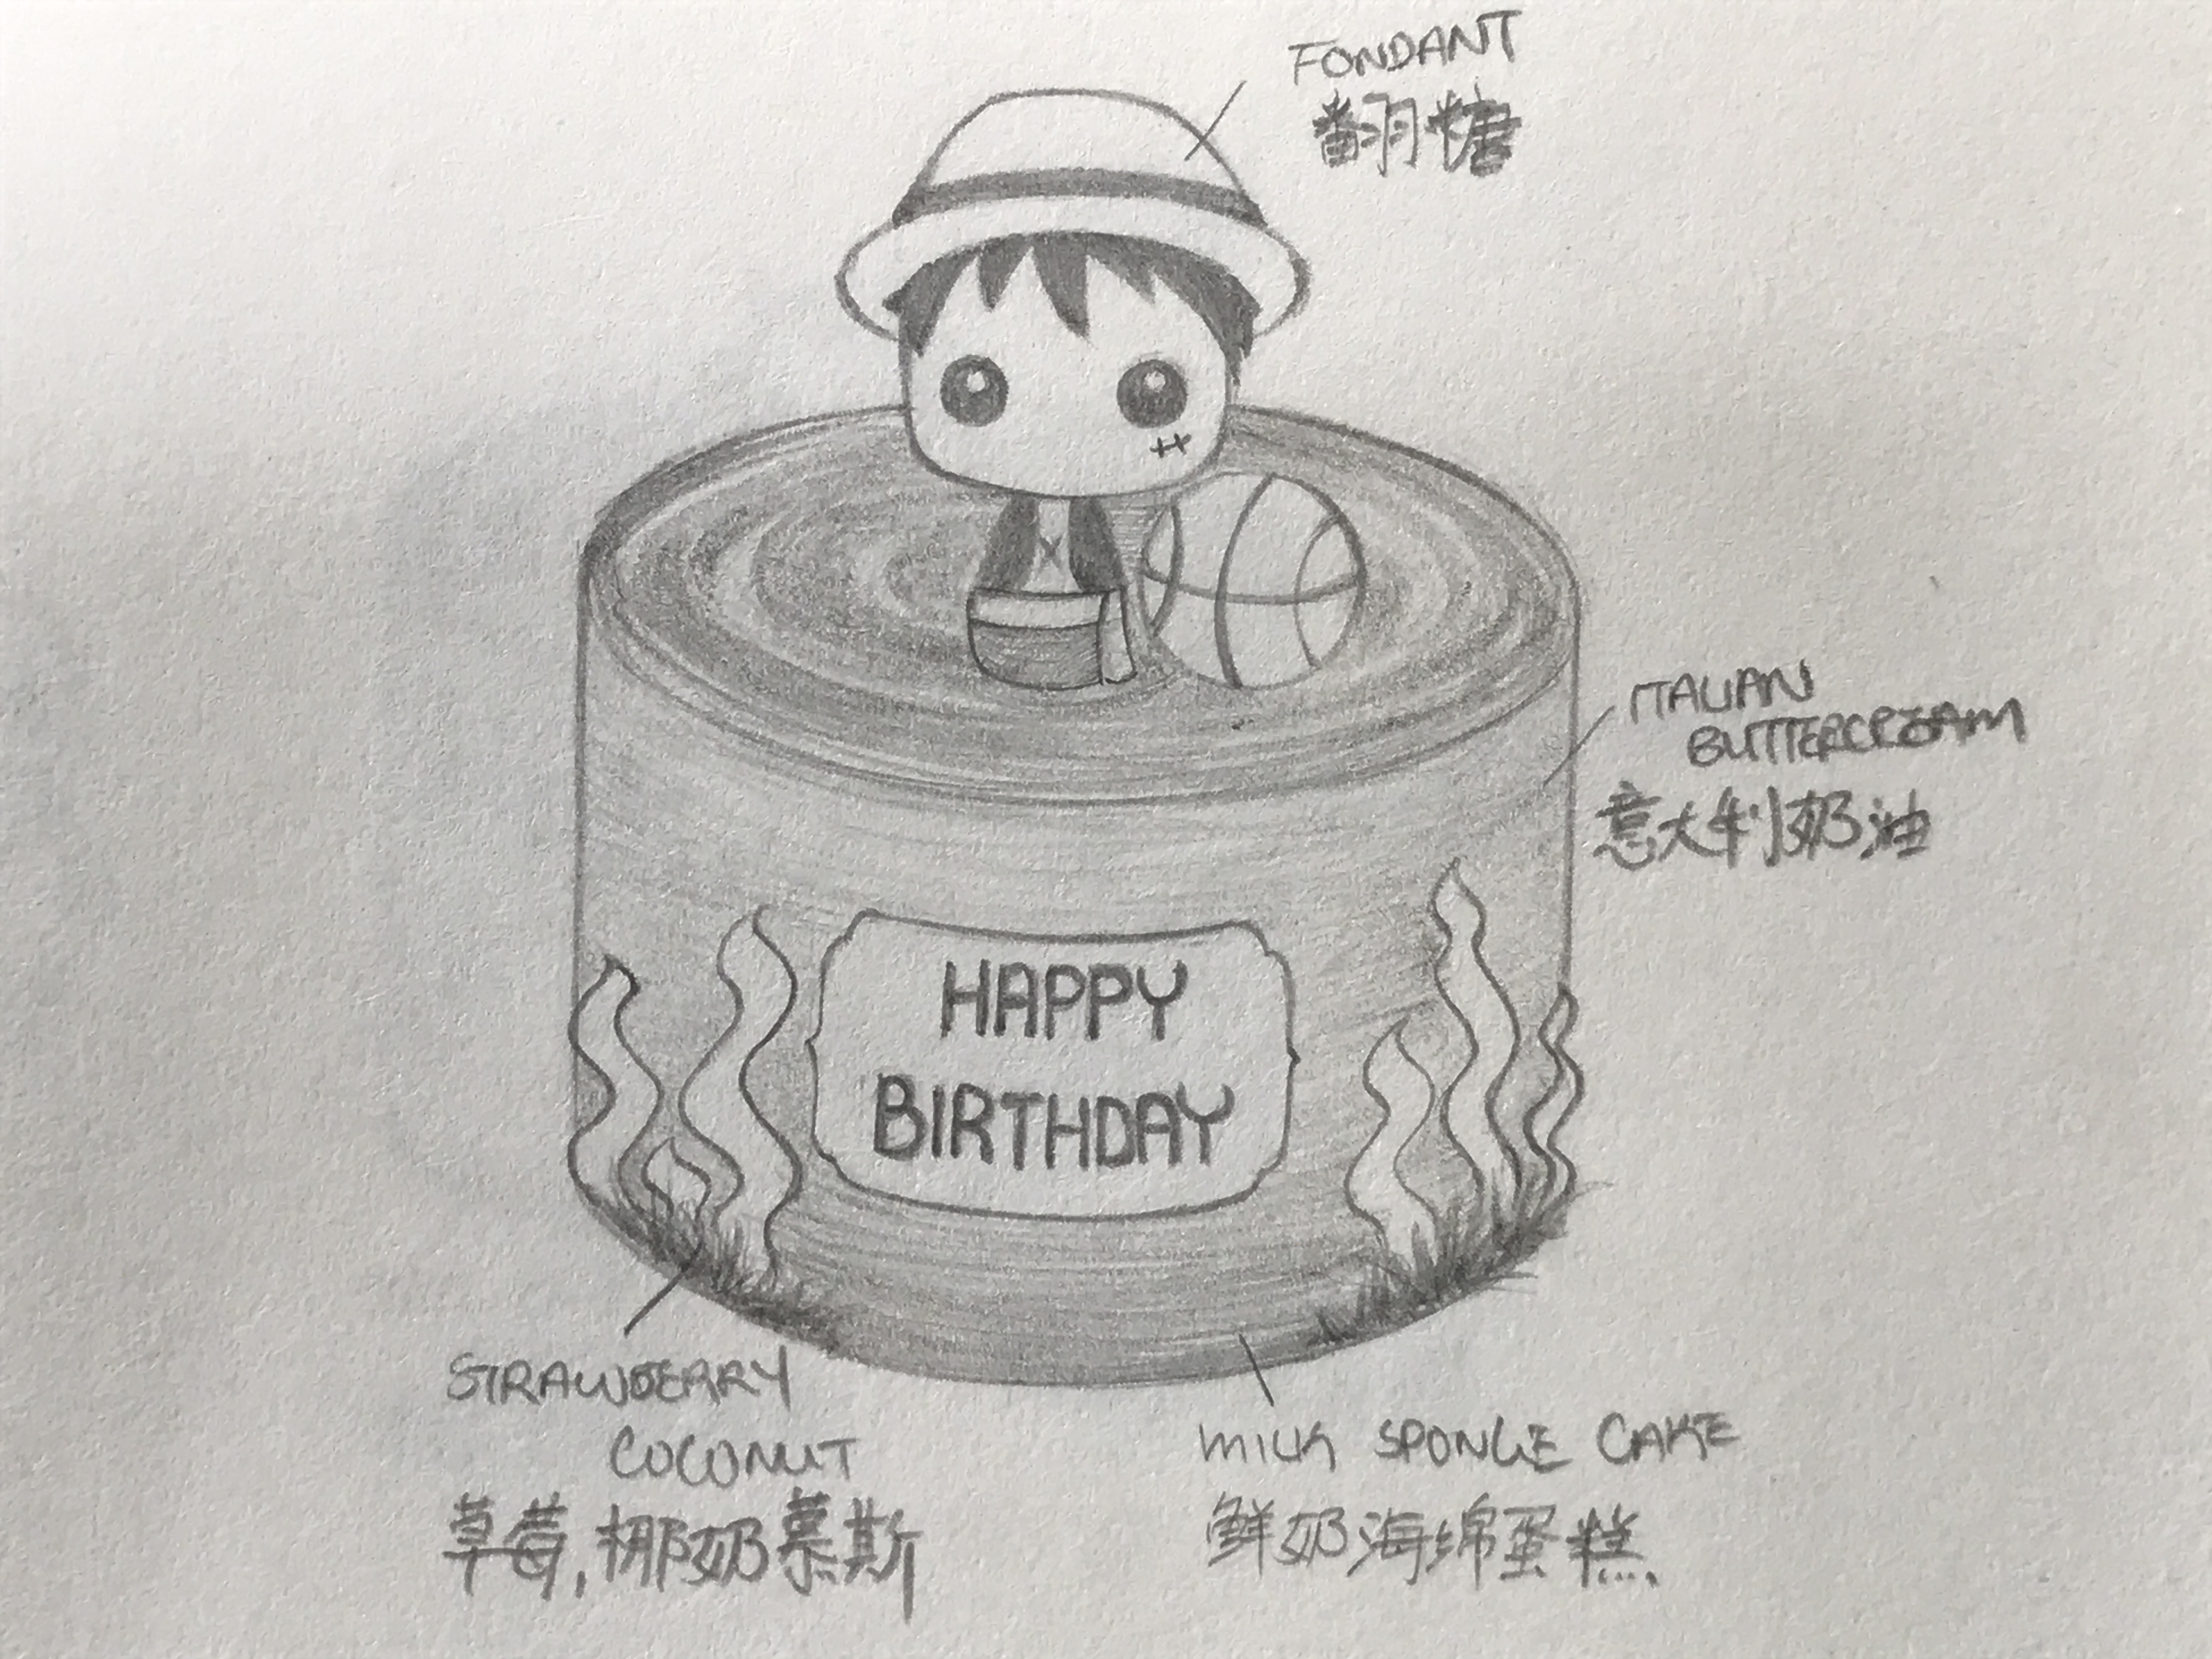 FONDANT
翻糖
ITALIAN
BUTTERCREAM
意大利奶油
HAPPY
BIRTHDAY
STRAWBERRY
COCONUT
草莓,椰奶慕斯
MILK SPONGE CAKE
鲜奶海绵蛋糕.